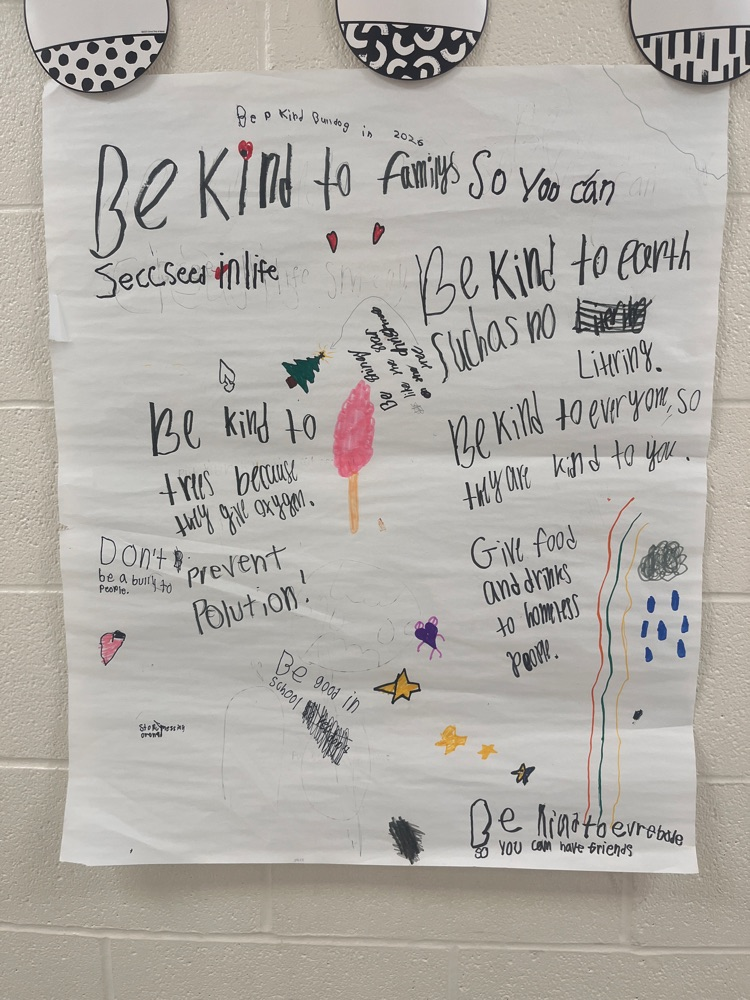 Be a Kind Bulldog in 2026
Be Kind to familys So You can
Seccseed in life
Be Kind to earth
Such as no
Litering.
Be shiny
like the star
on the christmas
tree
Be kind to
trees because
they give oxygen.
Be Kind to everyone, so
they are kind to you.
Don't
be a bully to
People.
prevent
Polution!
Give food
and drinks
to homless
people.
Be good in
school
Stop
Be kind to evrebode
so you cam have friends